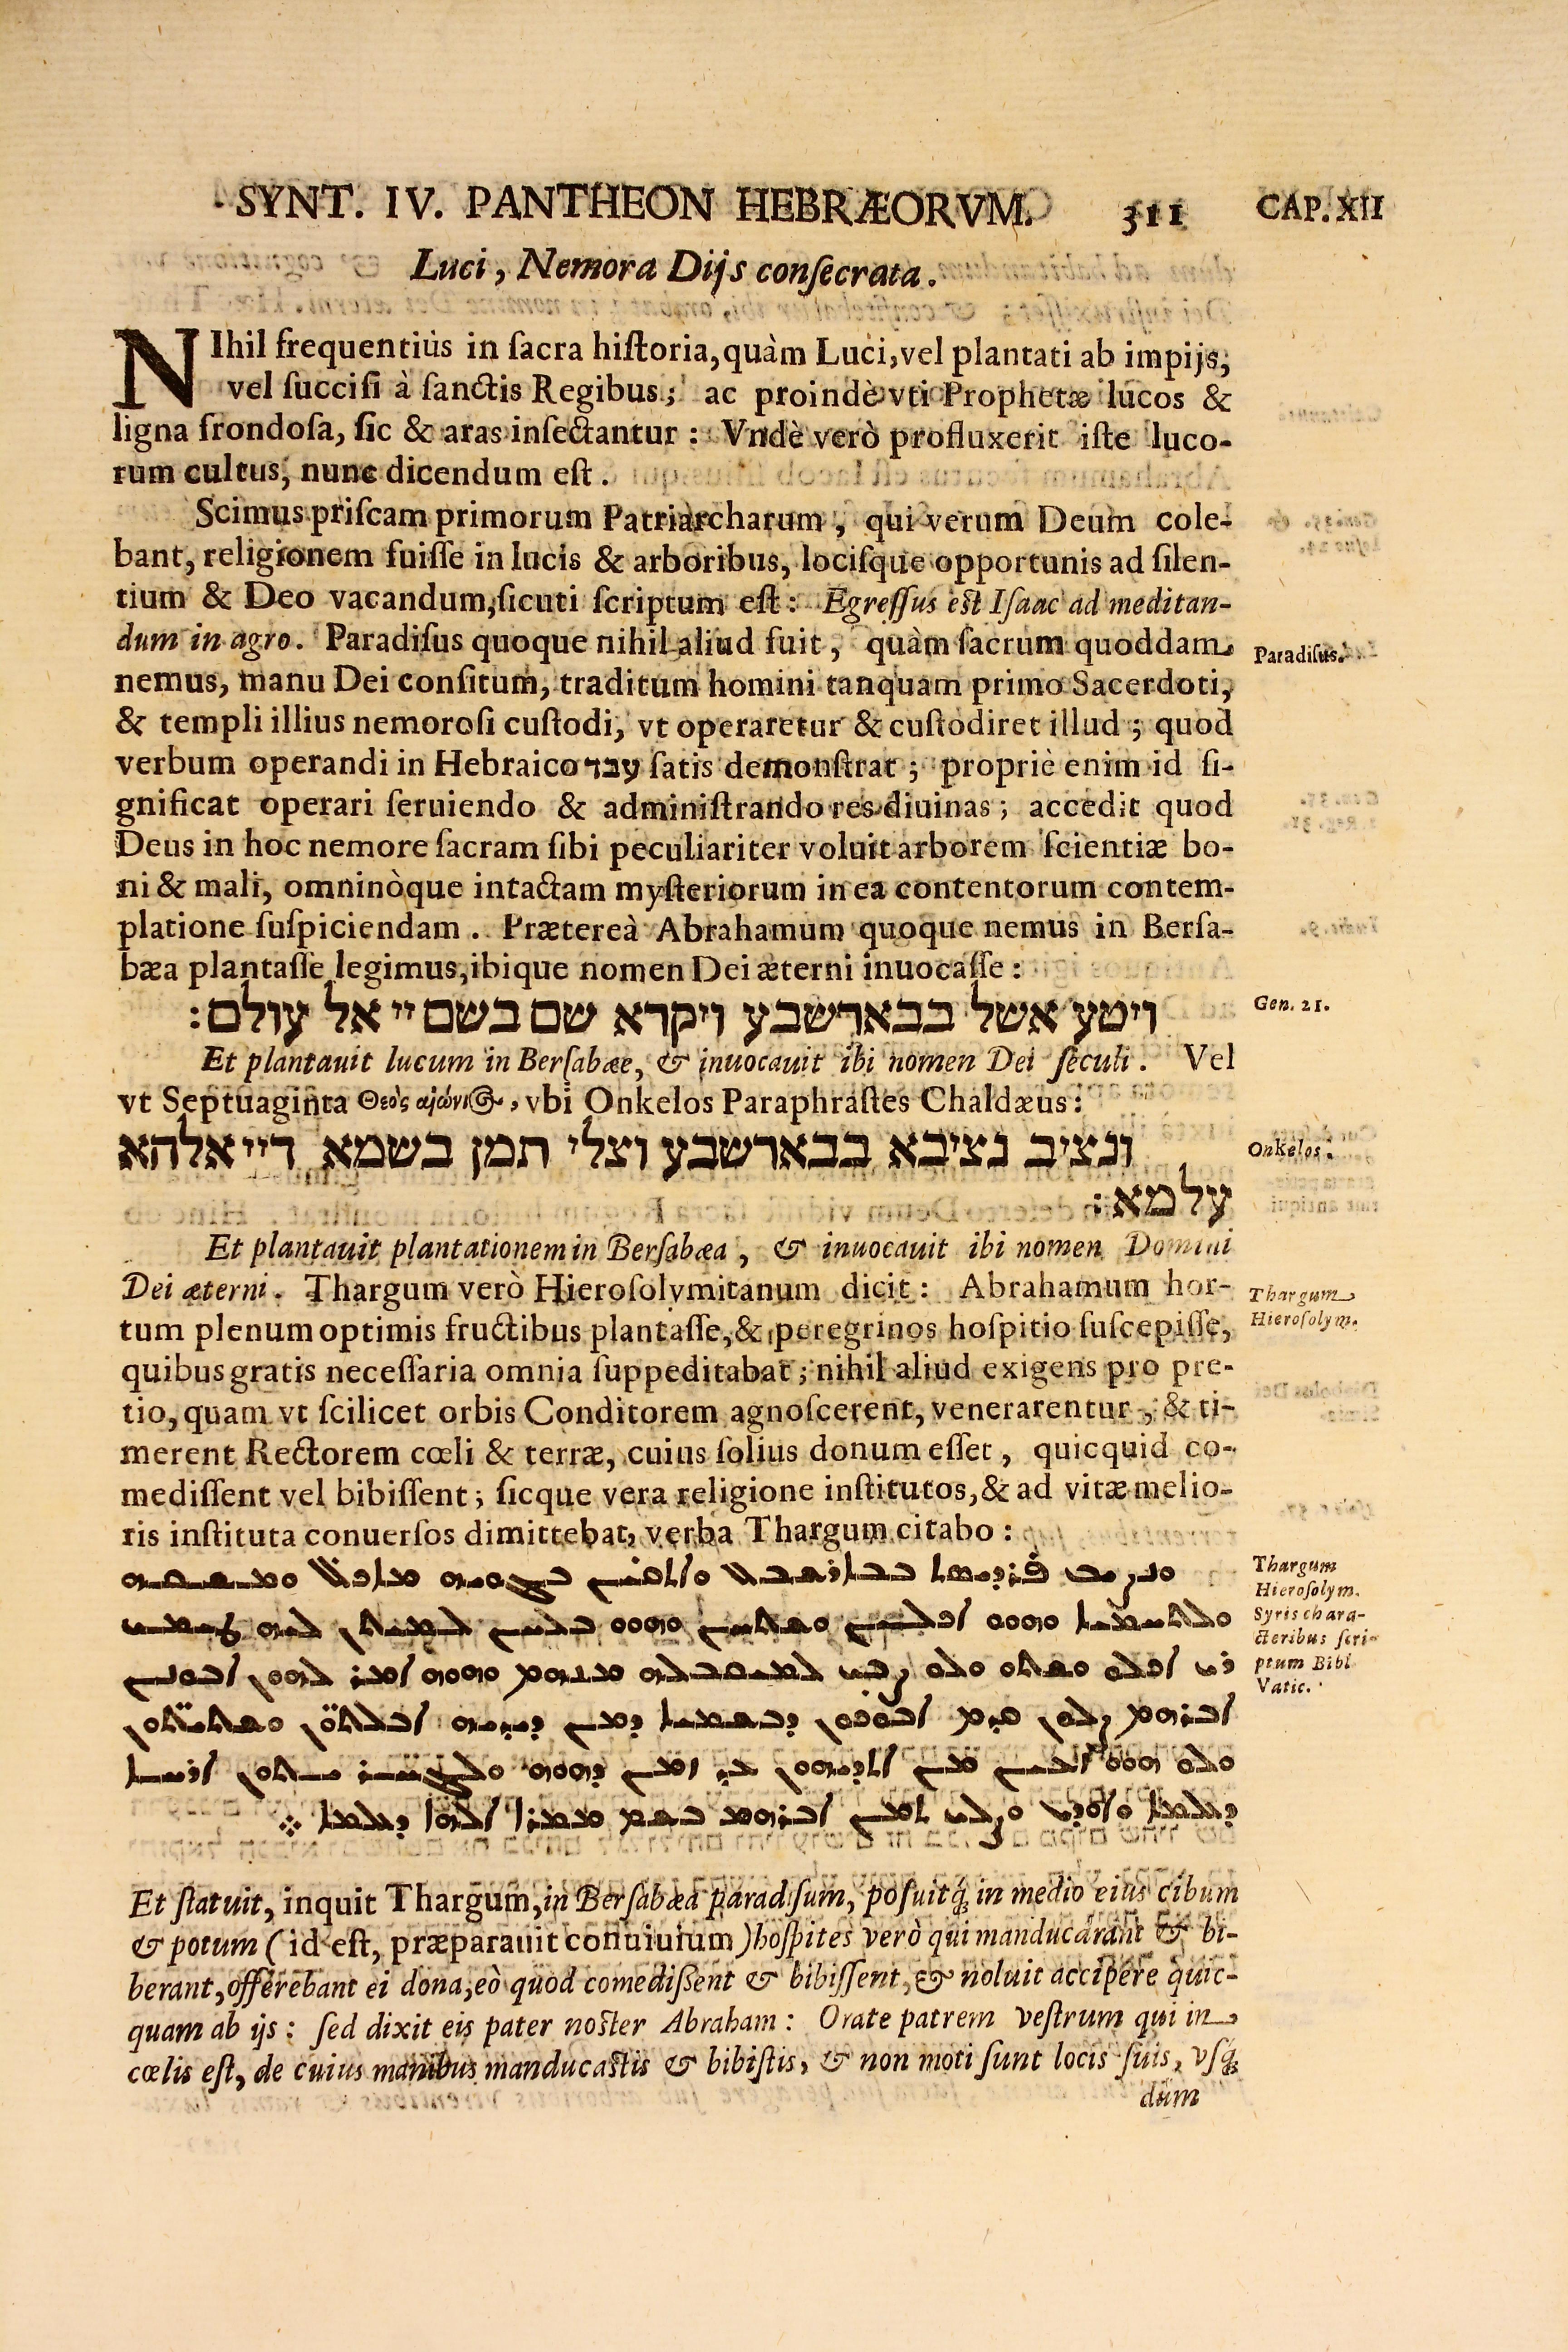 SYNT. IV. PANTHEON HEBRÆORVM. 311 CAP. XII
Luci, Nemora Dijs conſecrata.
NIhil frequentiùs in ſacra hiſtoria, quàm Luci, vel plantati ab impijs,
vel ſucciſi à ſanctis Regibus; ac proindè vti Prophetæ lucos &
ligna frondoſa, ſic & aras inſectantur: Vndè verò profluxerit iſte luco-
rum cultus, nunc dicendum eſt.
Scimus priſcam primorum Patriarcharum, qui verum Deum cole-
bant, religionem fuiſſe in lucis & arboribus, lociſque opportunis ad ſilen-
tium & Deo vacandum, ſicuti ſcriptum eſt: Egreſſus eſt Iſaac ad meditan-
dum in agro. Paradiſus quoque nihil aliud fuit, quàm ſacrum quoddam
Paradiſus.
nemus, manu Dei conſitum, traditum homini tanquam primo Sacerdoti,
& templi illius nemoroſi cuſtodi, vt operaretur & cuſtodiret illud; quod
verbum operandi in Hebraico עבד ſatis demonſtrat; propriè enim id ſi-
gnificat operari ſeruiendo & adminiſtrando res diuinas; accedit quod
Deus in hoc nemore ſacram ſibi peculiariter voluit arborem ſcientiæ bo-
ni & mali, omninòque intactam myſteriorum in ea contentorum contem-
platione ſuſpiciendam. Prætereà Abrahamum quoque nemus in Berſa-
bæa plantaſſe legimus, ibique nomen Dei æterni inuocaſſe:
ויטע אשל בבארשבע ויקרא שם בשם יי אל עולם:
Gen. 21.
Et plantauit lucum in Berſabæe, & inuocauit ibi nomen Dei ſeculi. Vel
vt Septuaginta Θεὸς αἰώνιος, vbi Onkelos Paraphraſtes Chaldæus:
ונציב נציבא בבארשבע וצלי תמן בשמא דיי אלהא
Onkelos.
עלמא:
Et plantauit plantationem in Berſabæa, & inuocauit ibi nomen Domini
Dei æterni. Thargum verò Hieroſolymitanum dicit: Abrahamum hor-
Thargum
Hieroſolym.
tum plenum optimis fructibus plantaſſe, & peregrinos hoſpitio ſuſcepiſſe,
quibus gratis neceſſaria omnia ſuppeditabat; nihil aliud exigens pro pre-
tio, quam vt ſcilicet orbis Conditorem agnoſcerent, venerarentur, & ti-
merent Rectorem cœli & terræ, cuius ſolius donum eſſet, quicquid co-
mediſſent vel bibiſſent; ſicque vera religione inſtitutos, & ad vitæ melio-
ris inſtituta conuerſos dimittebat, verba Thargum citabo:
Thargum
Hieroſolym.
Syris chara-
cteribus ſcri-
ptum Bibl.
Vatic.
Et ſtatuit, inquit Thargum, in Berſabæa paradiſum, poſuitq́; in medio eius cibum
& potum (id eſt, præparauit conuiuium) hoſpites verò qui manducarant & bi-
berant, offerebant ei dona, eò quod comediſſent & bibiſſent, & noluit accipere quic-
quam ab ijs: ſed dixit eis pater noſter Abraham: Orate patrem veſtrum qui in
cœlis eſt, de cuius manibus manducaſtis & bibiſtis, & non moti ſunt locis ſuis, vſq;
dum